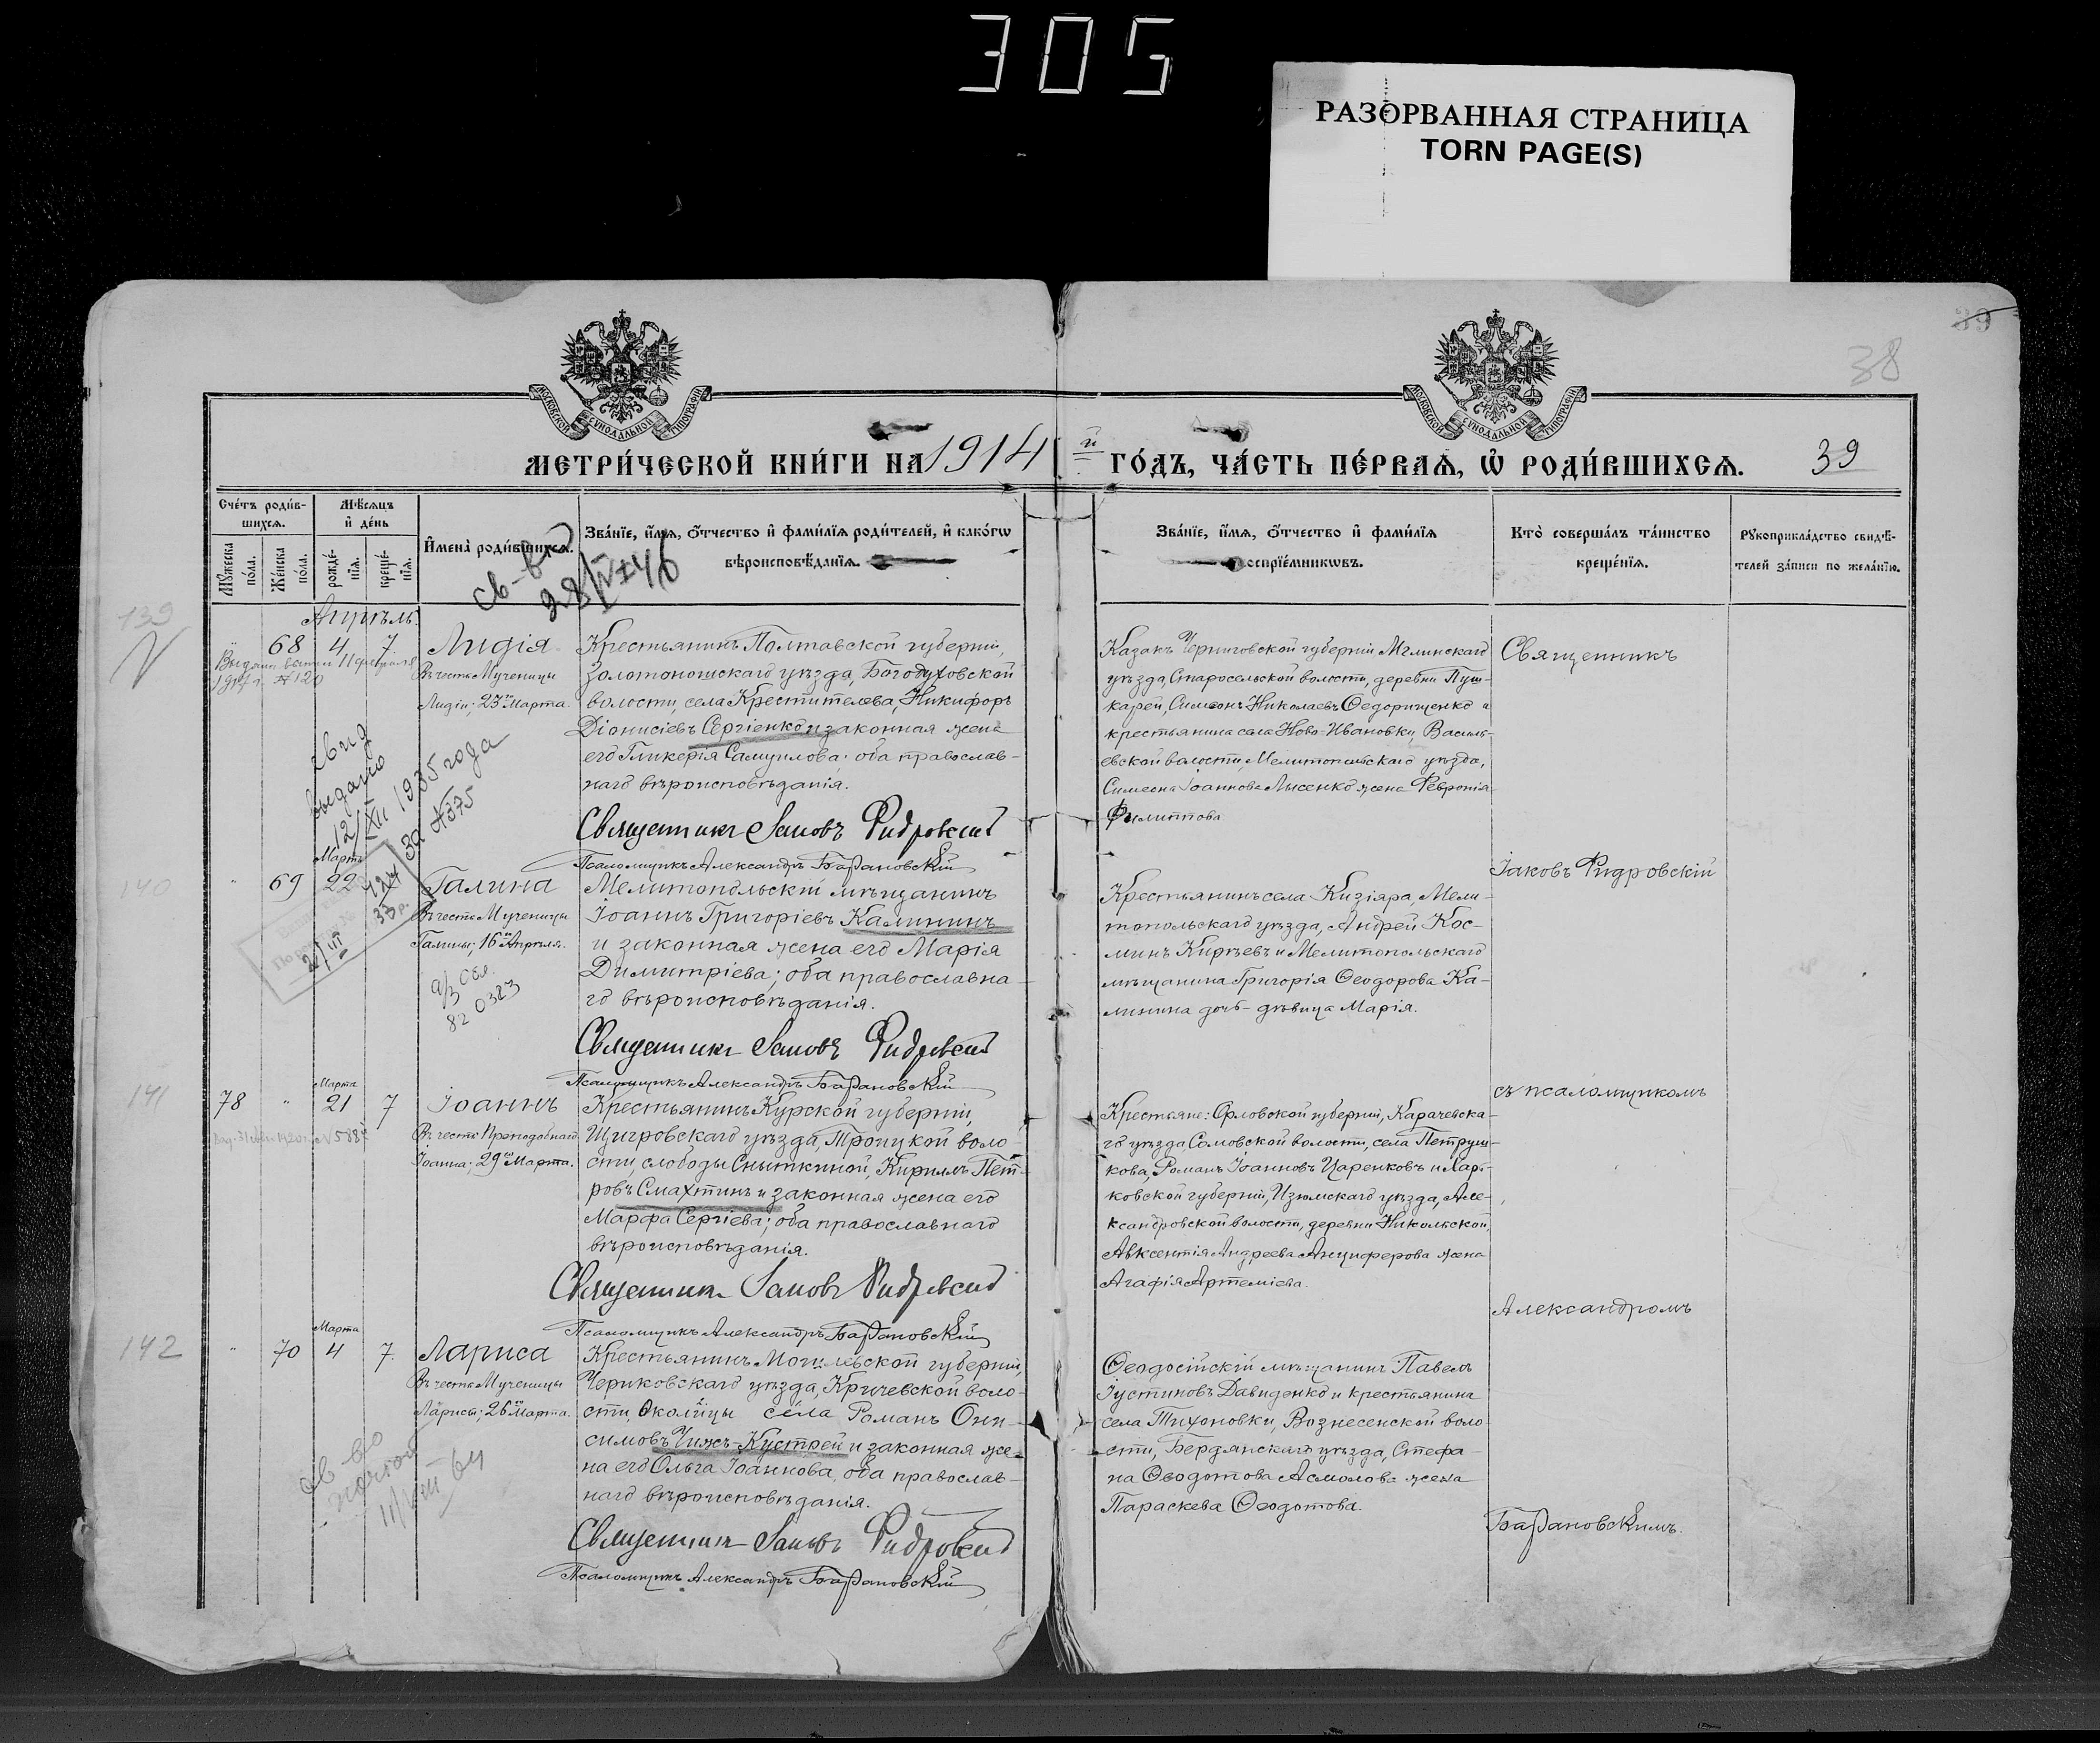 305
РАЗОРВАННАЯ СТРАНИЦА
TORN PAGE(S)
39
38
МОСКОВСКОЙ СѴНОДАЛЬНОЙ ТИПОГРАФІИ
МОСКОВСКОЙ СѴНОДАЛЬНОЙ ТИПОГРАФІИ
МЕТРИ́ЧЕСКОЙ КНИ́ГИ НА 1914 й ГО́ДЪ, ЧА́СТЬ ПЕ́РВАѦ, Ѡ҆ РОДИ́ВШИХСѦ. 39
Сче́тъ роди́в-
шихсѧ.
Мѣ́сѧцъ
и҆ де́нь
Мꙋ́жеска по́ла.
Же́нска по́ла.
рожде́-
нїѧ.
креще́-
нїѧ.
И҆мена̀ роди́вшихсѧ.
Зва́нїе, и҆́мѧ, ѻ҆́тчество и҆ фами́лїѧ роди́телей, и҆ како́гѡ
вѣроисповѣ́данїѧ.
Зва́нїе, и҆́мѧ, ѻ҆́тчество и҆ фами́лїѧ
оспрїе́мникѡвъ.
Кто̀ соверша́лъ та́инство
креще́нїѧ.
Рꙋкоприкла́дство свидѣ́-
телей за́писи по жела́нїю.
св-во
28/IV-46
Апрѣль.
139
68 4 7. Лидія
Въ честь Мученицы
Лидіи; 23го Марта.
Выдано 11 февраля
1917 г. № 120
Крестьянинъ Полтавской губерніи,
Золотоношскаго уѣзда, Богодуховской
волости, села Крестителева, Никифоръ
Діонисіевъ Сергіенко и законная жена
его Гликерія Самуилова; оба православ-
наго вѣроисповѣданія.
Священникъ Іаковъ Фидровскій
Псаломщикъ Александръ Барановскій
Казакъ Черниговской губерніи Мглинскаго
уѣзда, Старосельской волости, деревни Пуш-
карей, Симеонъ Николаевъ Ѳедорищенко и
крестьянина села Ново-Ивановки, Василь-
евской волости, Мелитопольскаго уѣзда,
Симеона Іоаннова Лысенко жена Февронія
Филиппова
Священникъ
свид
выдано
12/XII 1935 года
за № 375
140
Марта
" 69 22 Галина
Въ честь Мученицы
Галины; 16го Апрѣля.
21/III
а/з
82 0323
Мелитопольскій мѣщанинъ
Іоаннъ Григоріевъ Калининъ
и законная жена его Марія
Димитріева; оба православна-
го вѣроисповѣданія.
Священникъ Іаковъ Фидровскій
Псаломщикъ Александръ Барановскій
Крестьянинъ села Кизіяра, Мели-
топольскаго уѣзда, Андрей Кос-
минъ Кирѣевъ и Мелитопольскаго
мѣщанина Григорія Ѳеодорова Ка-
линина дочь - дѣвица Марія.
Іаковъ Фидровскій
141
Марта
78 " 21 7 Іоаннъ
Въ честь Преподобнаго
Іоанна; 29го Марта.
Крестьянинъ Курской губерніи,
Щигровскаго уѣзда, Троицкой воло-
сти, слободы Сныткиной, Кириллъ Пет-
ровъ Смахтинъ и законная жена его
Марфа Сергіева; оба православнаго
вѣроисповѣданія.
Священникъ Іаковъ Фидровскій
Псаломщикъ Александръ Барановскій
Крестьяне: Орловской губерніи, Карачевска-
го уѣзда, Сомовской волости, села Петруш-
кова, Романъ Іоанновъ Царенковъ и Харь-
ковской губерніи, Изюмскаго уѣзда, Але-
ксандровской волости, деревни Никольской,
Авксентія Андреева Анциферова жена
Агафія Артеміева.
съ псаломщикомъ
Александромъ
142
Марта
" 70 4 7. Лариса
Въ честь Мученицы
Ларисы; 26го Марта.
св-во
11/VIII 64
Крестьянинъ Могилевской губерніи,
Чериковскаго уѣзда, Кричевской воло-
сти, Околицы села Романъ Они-
симовъ Чижъ-Кустрей и законная же-
на его Ольга Іоаннова, оба православ-
наго вѣроисповѣданія.
Священникъ Іаковъ Фидровскій
Псаломщикъ Александръ Барановскій
Ѳеодосійскій мѣщанинъ Павелъ
Іустиновъ Давиденко и крестьянина
села Тихоновки, Вознесенской воло-
сти, Бердянскаго уѣзда, Стефа-
на Ѳеодотова Асмолова жена
Параскева Ѳеодотова.
Барановскимъ.